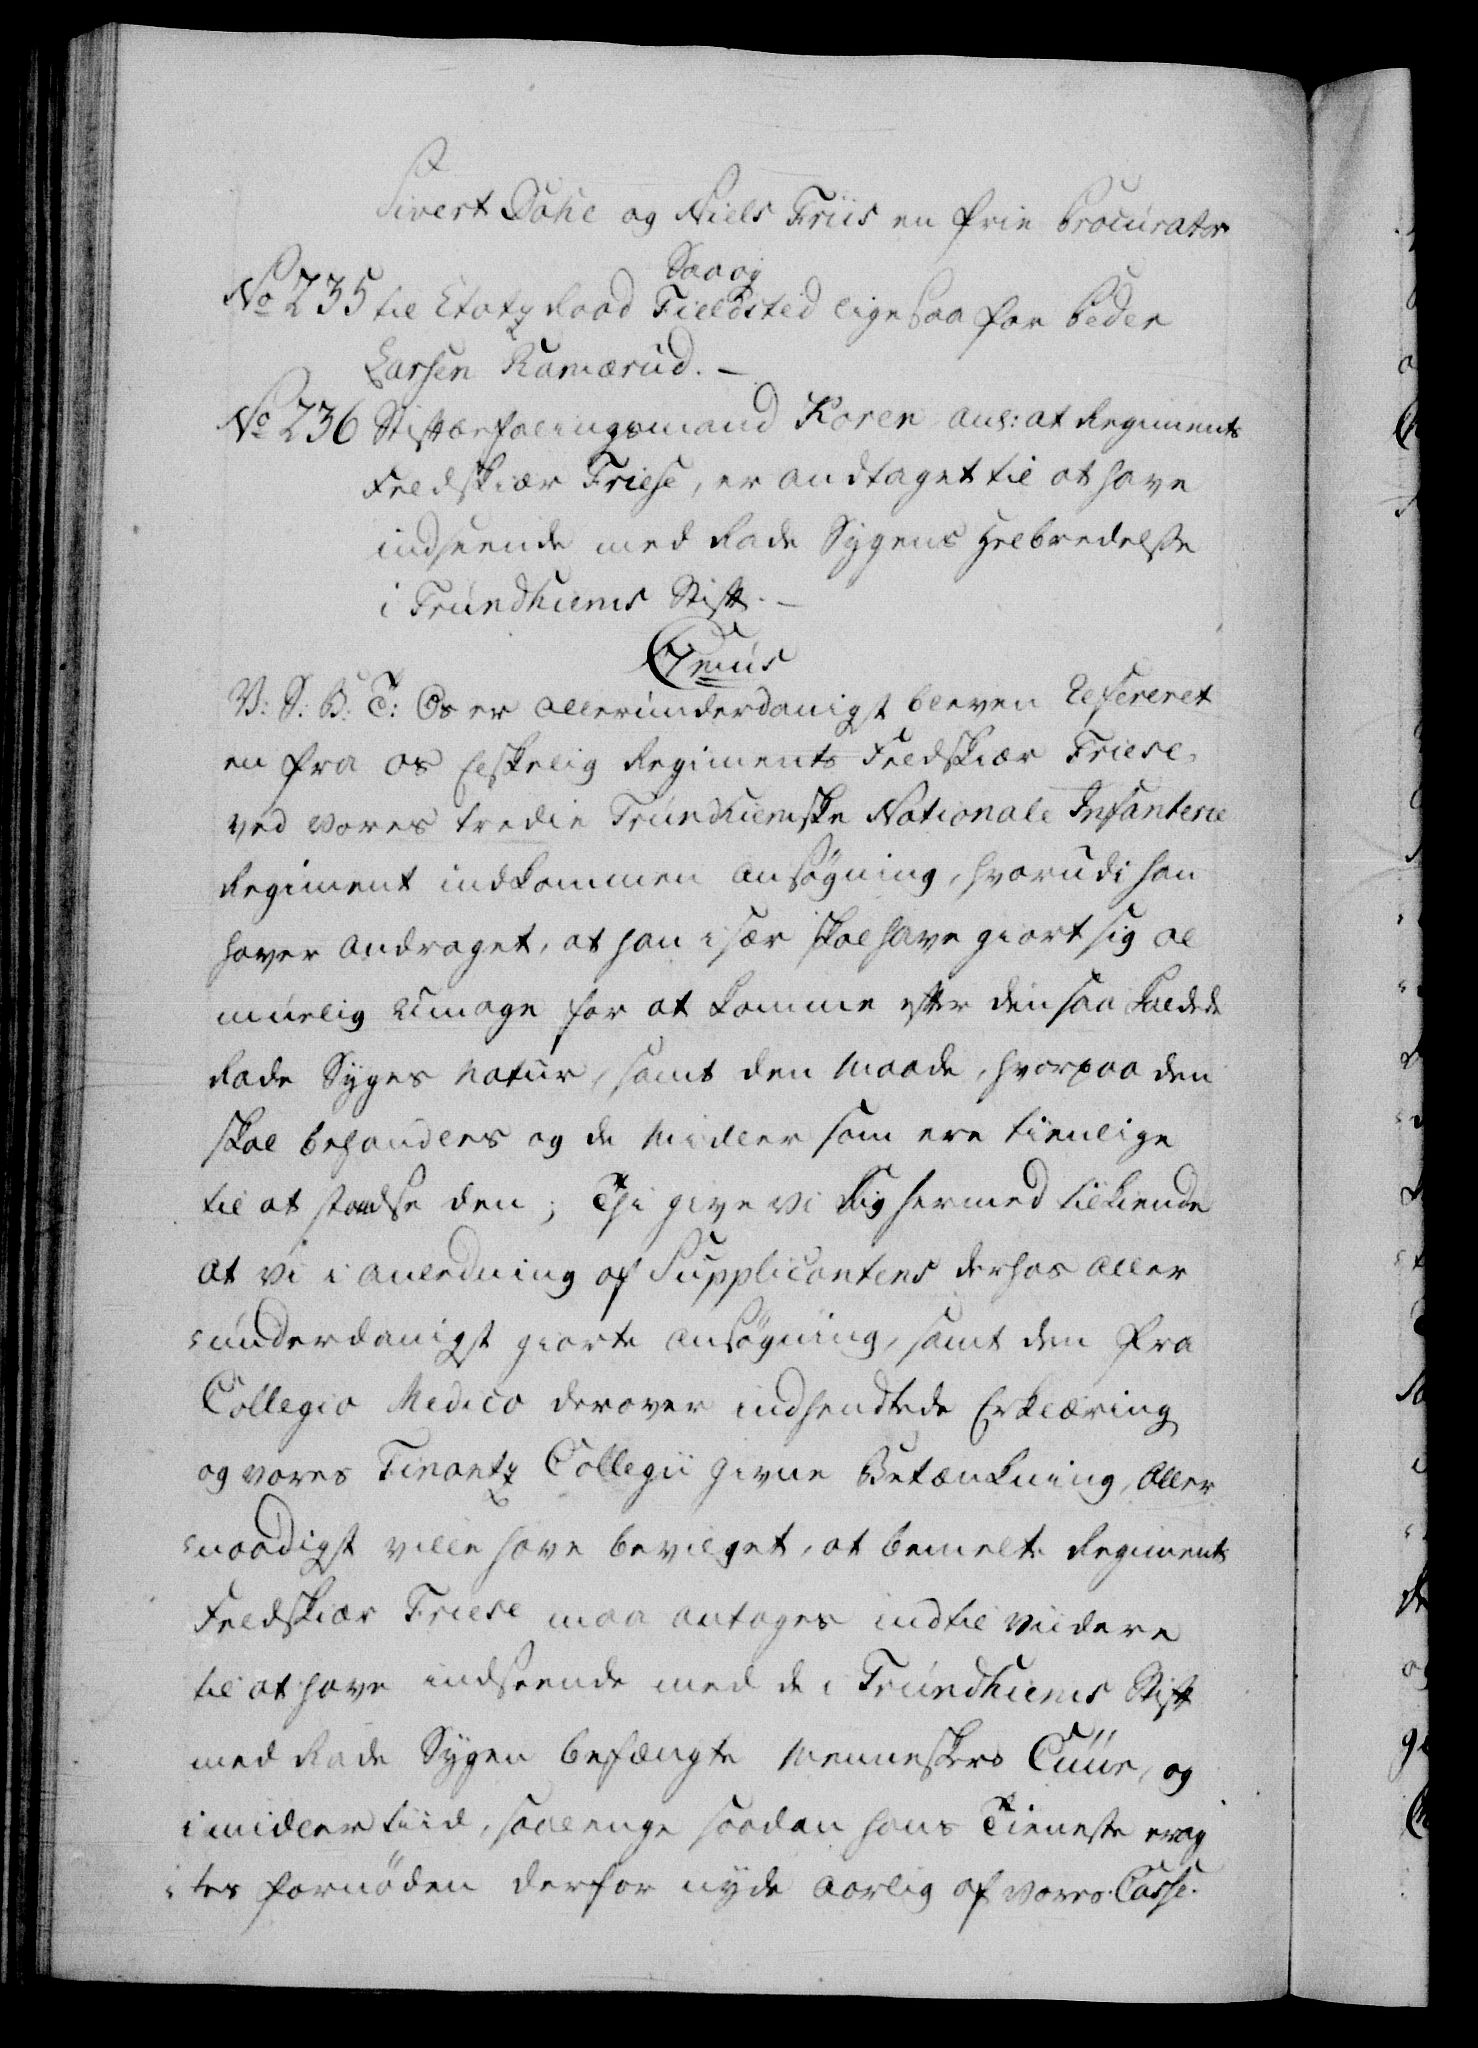 Sivert Dahl og Niels Friis en frie Procurator
Saa og
No 235 til Etatz Raad Fieldsted ligesaa for Peder
Larsen Ramerud. –
No 236 Stiftbefalingsmand Koren anl: at Regiments
Feldskiær Friese, er andtaget til at have
indseende med Rade Sygens Helbredelse
i Trundhiems Stift. –
Genus
V: S: B: T: Os er allerunderdanigst bleven Refereret
en fra os Elskelig Regiments Feldskiær Friese,
ved vores tredie Trundhiemske Nationale Infanterie
Regiment indkommen Ansøgning, hvorudi han
haver andraget, at han især skal have giort sig al
muelig Umage for at komme efter den saa kaldede
Rade Syges Natur, samt den Maade, hvorpaa den
skal behandles og de Midler som ere tienlige
til at standse den; Thi give vi dig hermed tilkiende
at vi i anledning af Supplicantens derhos aller
underdanigst giorte Ansøgning, samt den fra
Collegio Medico derover indsendtede Erklæring
og vores Finantz Collegii givne Betænkning, Aller
naadigst ville have bevilget, at bemelte Regiments
Feldskiær Friese maa antages indtil viidere
til at have indseende med de i Trundhiems Stift
med Rade Sygen befængte Menneskers Cuur, og
imidlertiid, saalenge saadan hans Tieneste erag
tes fornøden derfor nyde aarlig af vores Casse.